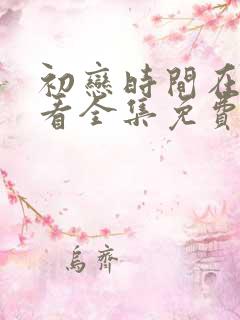 初戀時間在
看全集免費
烏齊